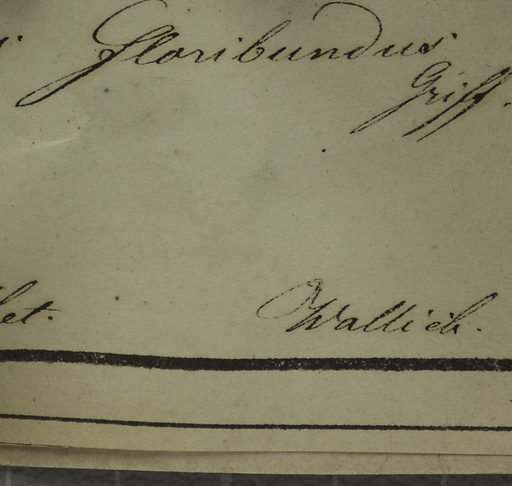 floribundus
Griff.
Wallich.